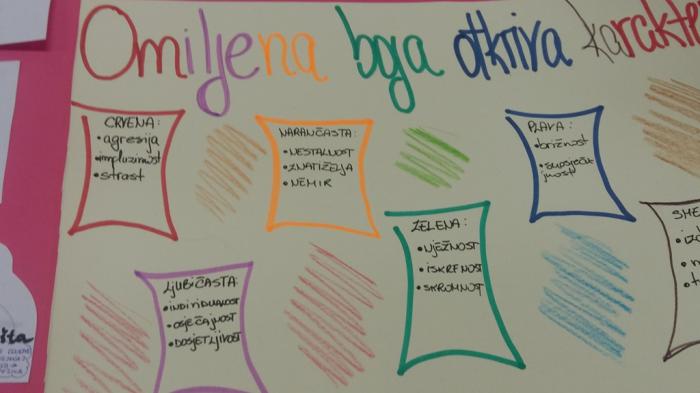 Omiljena boja otkriva karakter
CRVENA:
• agresija
• impluzivnost
• strast
NARANČASTA:
• NESTALNOST
• ZNATIŽELJA
• NEMIR
PLAVA:
• brižnost
• suosjeća-
jnost
SME
ZELENA:
• NJEŽNOST
• ISKRENOST
• SKROMNOST
LJUBIČASTA
• INDIVIDUALNOST
• OSJEĆAJNOST
• DOSJETLJIVOST